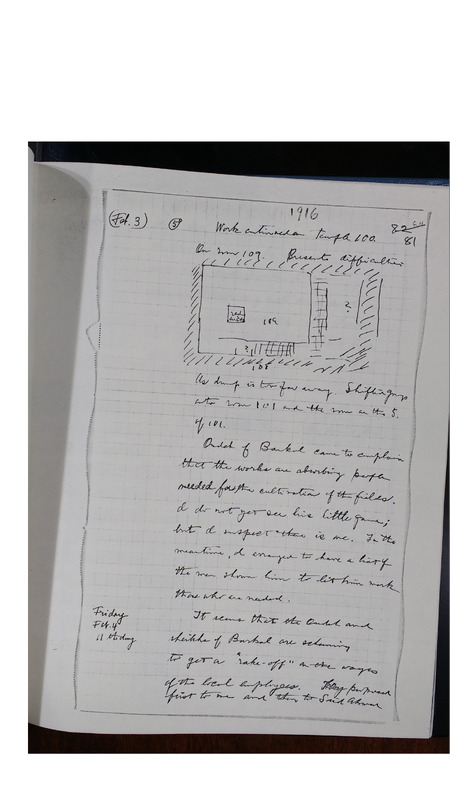 1916
(Feb. 3) ⑤ Work continued on Temple 100. 82
81
On room 109. Presents difficulties
red
109
?
?
108
As dump is too far away. Shifting gangs
into room 101 and the room on the S.
of 101.
Omdeh of Barkal came to complain
that the works are absorbing people
needed for the cultivation of the fields.
I do not yet see his little game;
but I suspect there is one. In the
meantime, I arranged to have a list of
the men shown him to let him mark
those who are needed.
Friday
Feb. 4
11th day
It seems that the Omdeh and
sheikhs of Barkal are scheming
to get a "rake-off" on the wages
of the local employees. They proposed
first to me and then to Said Ahmed